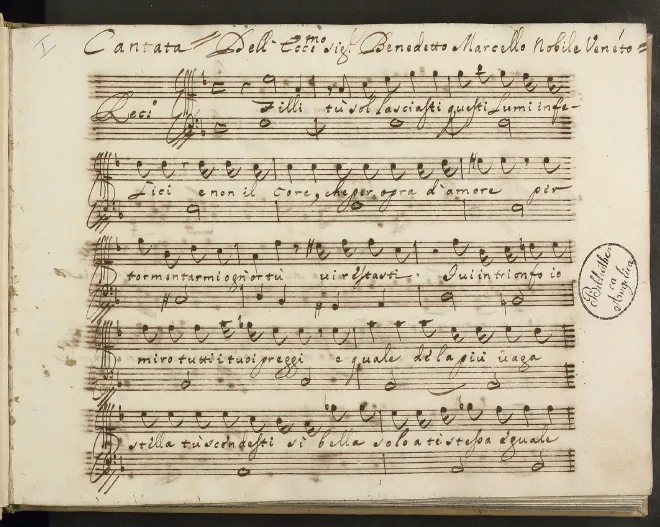 I
Cantata Dell Ecc.mo Sig.r Benedetto Marcello Nobile Venéto
Reci
Filli tù sol lasciasti questi lumi infe-
lici e non il core, che per opra d'amore per
tormentarmi ogn'or tù vi restasti. Qui in trionfo io
miro tutti i tuoi preggi e quale dè la più vaga
stella tù scendesti si bella solo a ti stessa èguale
Bibliothe
ca
Angelica